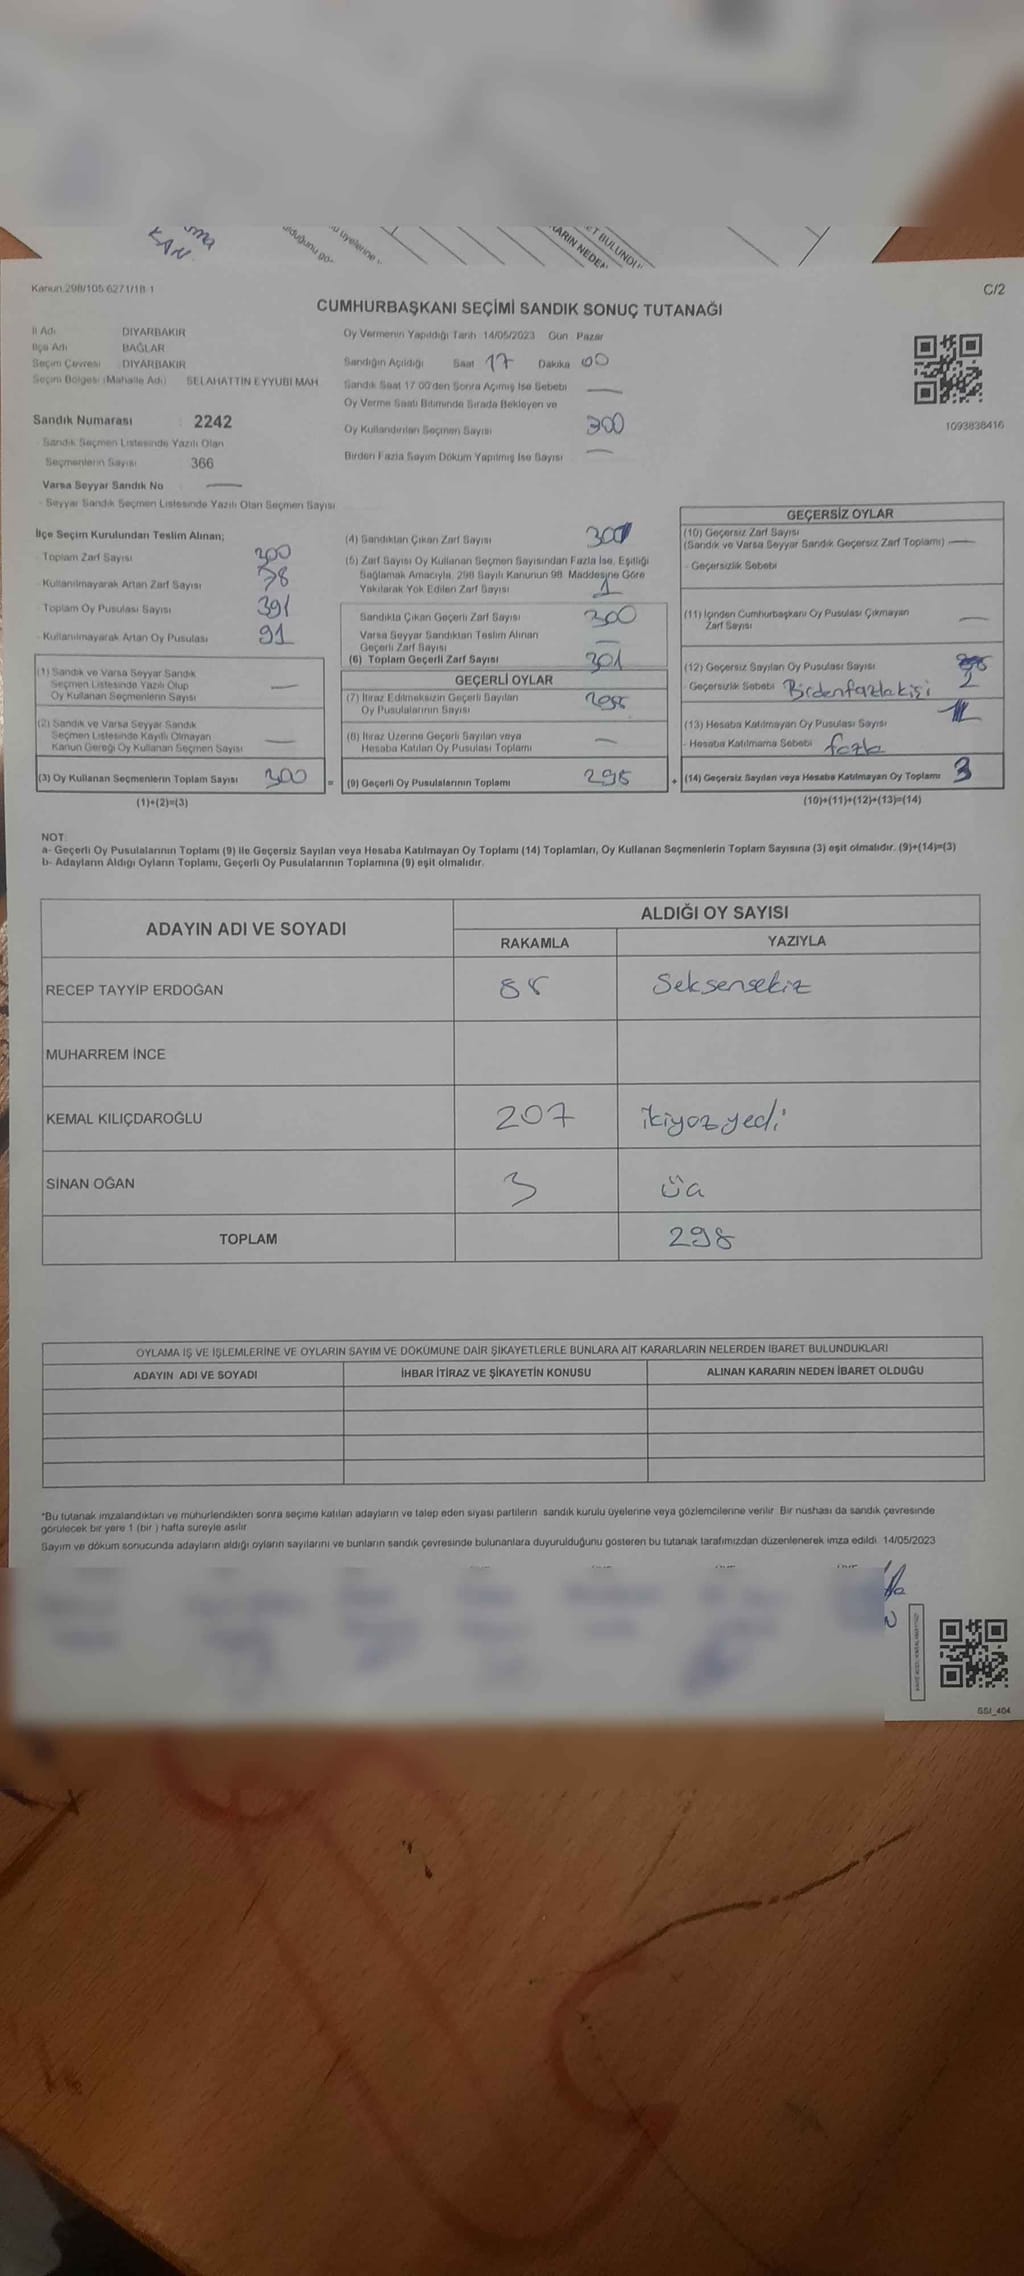 KAN
Kanun 298/105 627 1/1B-1
C/2
CUMHURBAŞKANI SEÇİMİ SANDIK SONUÇ TUTANAĞI
İl Adı DİYARBAKIR
İlçe Adı BAĞLAR
Seçim Çevresi DİYARBAKIR
Seçim Bölgesi (Mahalle Adı) SELAHATTİN EYYUBİ MAH.
Sandık Numarası : 2242
- Sandık Seçmen Listesinde Yazılı Olan
Seçmenlerin Sayısı 366
Varsa Seyyar Sandık No —
- Seyyar Sandık Seçmen Listesinde Yazılı Olan Seçmen Sayısı
Oy Vermenin Yapıldığı Tarih 14/05/2023 Gün Pazar
Sandığın Açıldığı Saat 17 Dakika 00
Sandık Saat 17 00'den Sonra Açımış İse Sebebi —
Oy Verme Saati Bitiminde Sırada Bekleyen ve
Oy Kullandırılan Seçmen Sayısı 300
Birden Fazla Sayım Döküm Yapılmış İse Sayısı —
1093838416
İlçe Seçim Kurulundan Teslim Alınan;
- Toplam Zarf Sayısı
- Kullanılmayarak Artan Zarf Sayısı 78
- Toplam Oy Pusulası Sayısı 391
- Kullanılmayarak Artan Oy Pusulası 91
(1) Sandık ve Varsa Seyyar Sandık
Seçmen Listesinde Yazılı Olup
Oy Kullanan Seçmenlerin Sayısı —
(2) Sandık ve Varsa Seyyar Sandık
Seçmen Listesinde Kayıtlı Olmayan
Kanun Gereği Oy Kullanan Seçmen Sayısı —
(3) Oy Kullanan Seçmenlerin Toplam Sayısı 300 =
(1)+(2)=(3)
(4) Sandıktan Çıkan Zarf Sayısı
(5) Zarf Sayısı Oy Kullanan Seçmen Sayısından Fazla İse, Eşitliği
Sağlamak Amacıyla, 298 Sayılı Kanunun 98. Maddesine Göre
Yakılarak Yok Edilen Zarf Sayısı 1
Sandıkta Çıkan Geçerli Zarf Sayısı 300
Varsa Seyyar Sandıktan Teslim Alınan
Geçerli Zarf Sayısı —
(6) Toplam Geçerli Zarf Sayısı 301
GEÇERLİ OYLAR
(7) İtiraz Edilmeksizin Geçerli Sayılan
Oy Pusulalarının Sayısı 298
(8) İtiraz Üzerine Geçerli Sayılan veya
Hesaba Katılan Oy Pusulası Toplamı —
(9) Geçerli Oy Pusulalarının Toplamı 298 +
GEÇERSİZ OYLAR
(10) Geçersiz Zarf Sayısı
(Sandık ve Varsa Seyyar Sandık Geçersiz Zarf Toplamı) —
- Geçersizlik Sebebi
(11) İçinden Cumhurbaşkanı Oy Pusulası Çıkmayan
Zarf Sayısı —
(12) Geçersiz Sayılan Oy Pusulası Sayısı
- Geçersizlik Sebebi Birden fazla kişi 2
(13) Hesaba Katılmayan Oy Pusulası Sayısı
- Hesaba Katılmama Sebebi fazla
(14) Geçersiz Sayılan veya Hesaba Katılmayan Oy Toplamı 3
(10)+(11)+(12)+(13)=(14)
NOT:
a- Geçerli Oy Pusulalarının Toplamı (9) ile Geçersiz Sayılan veya Hesaba Katılmayan Oy Toplamı (14) Toplamları, Oy Kullanan Seçmenlerin Toplam Sayısına (3) eşit olmalıdır. (9)+(14)=(3)
b- Adayların Aldığı Oyların Toplamı, Geçerli Oy Pusulalarının Toplamına (9) eşit olmalıdır.
ADAYIN ADI VE SOYADI ALDIĞI OY SAYISI
RAKAMLA YAZIYLA
RECEP TAYYİP ERDOĞAN 88 Seksensekiz
MUHARREM İNCE
KEMAL KILIÇDAROĞLU 207 ikiyüz yedi
SİNAN OĞAN 3 üç
TOPLAM 298
OYLAMA İŞ VE İŞLEMLERİNE VE OYLARIN SAYIM VE DÖKÜMÜNE DAİR ŞİKAYETLERLE BUNLARA AİT KARARLARIN NELERDEN İBARET BULUNDUKLARI
ADAYIN ADI VE SOYADI İHBAR İTİRAZ VE ŞİKAYETİN KONUSU ALINAN KARARIN NEDEN İBARET OLDUĞU
*Bu tutanak imzalandıktan ve mühürlendikten sonra seçime katılan adayların ve talep eden siyasi partilerin sandık kurulu üyelerine veya gözlemcilerine verilir. Bir nüshası da sandık çevresinde
görülecek bir yere 1 (bir ) hafta süreyle asılır
Sayım ve döküm sonucunda adayların aldığı oyların sayılarını ve bunların sandık çevresinde bulunanlara duyurulduğunu gösteren bu tutanak tarafımızdan düzenlenerek imza edildi. 14/05/2023
SSI_404